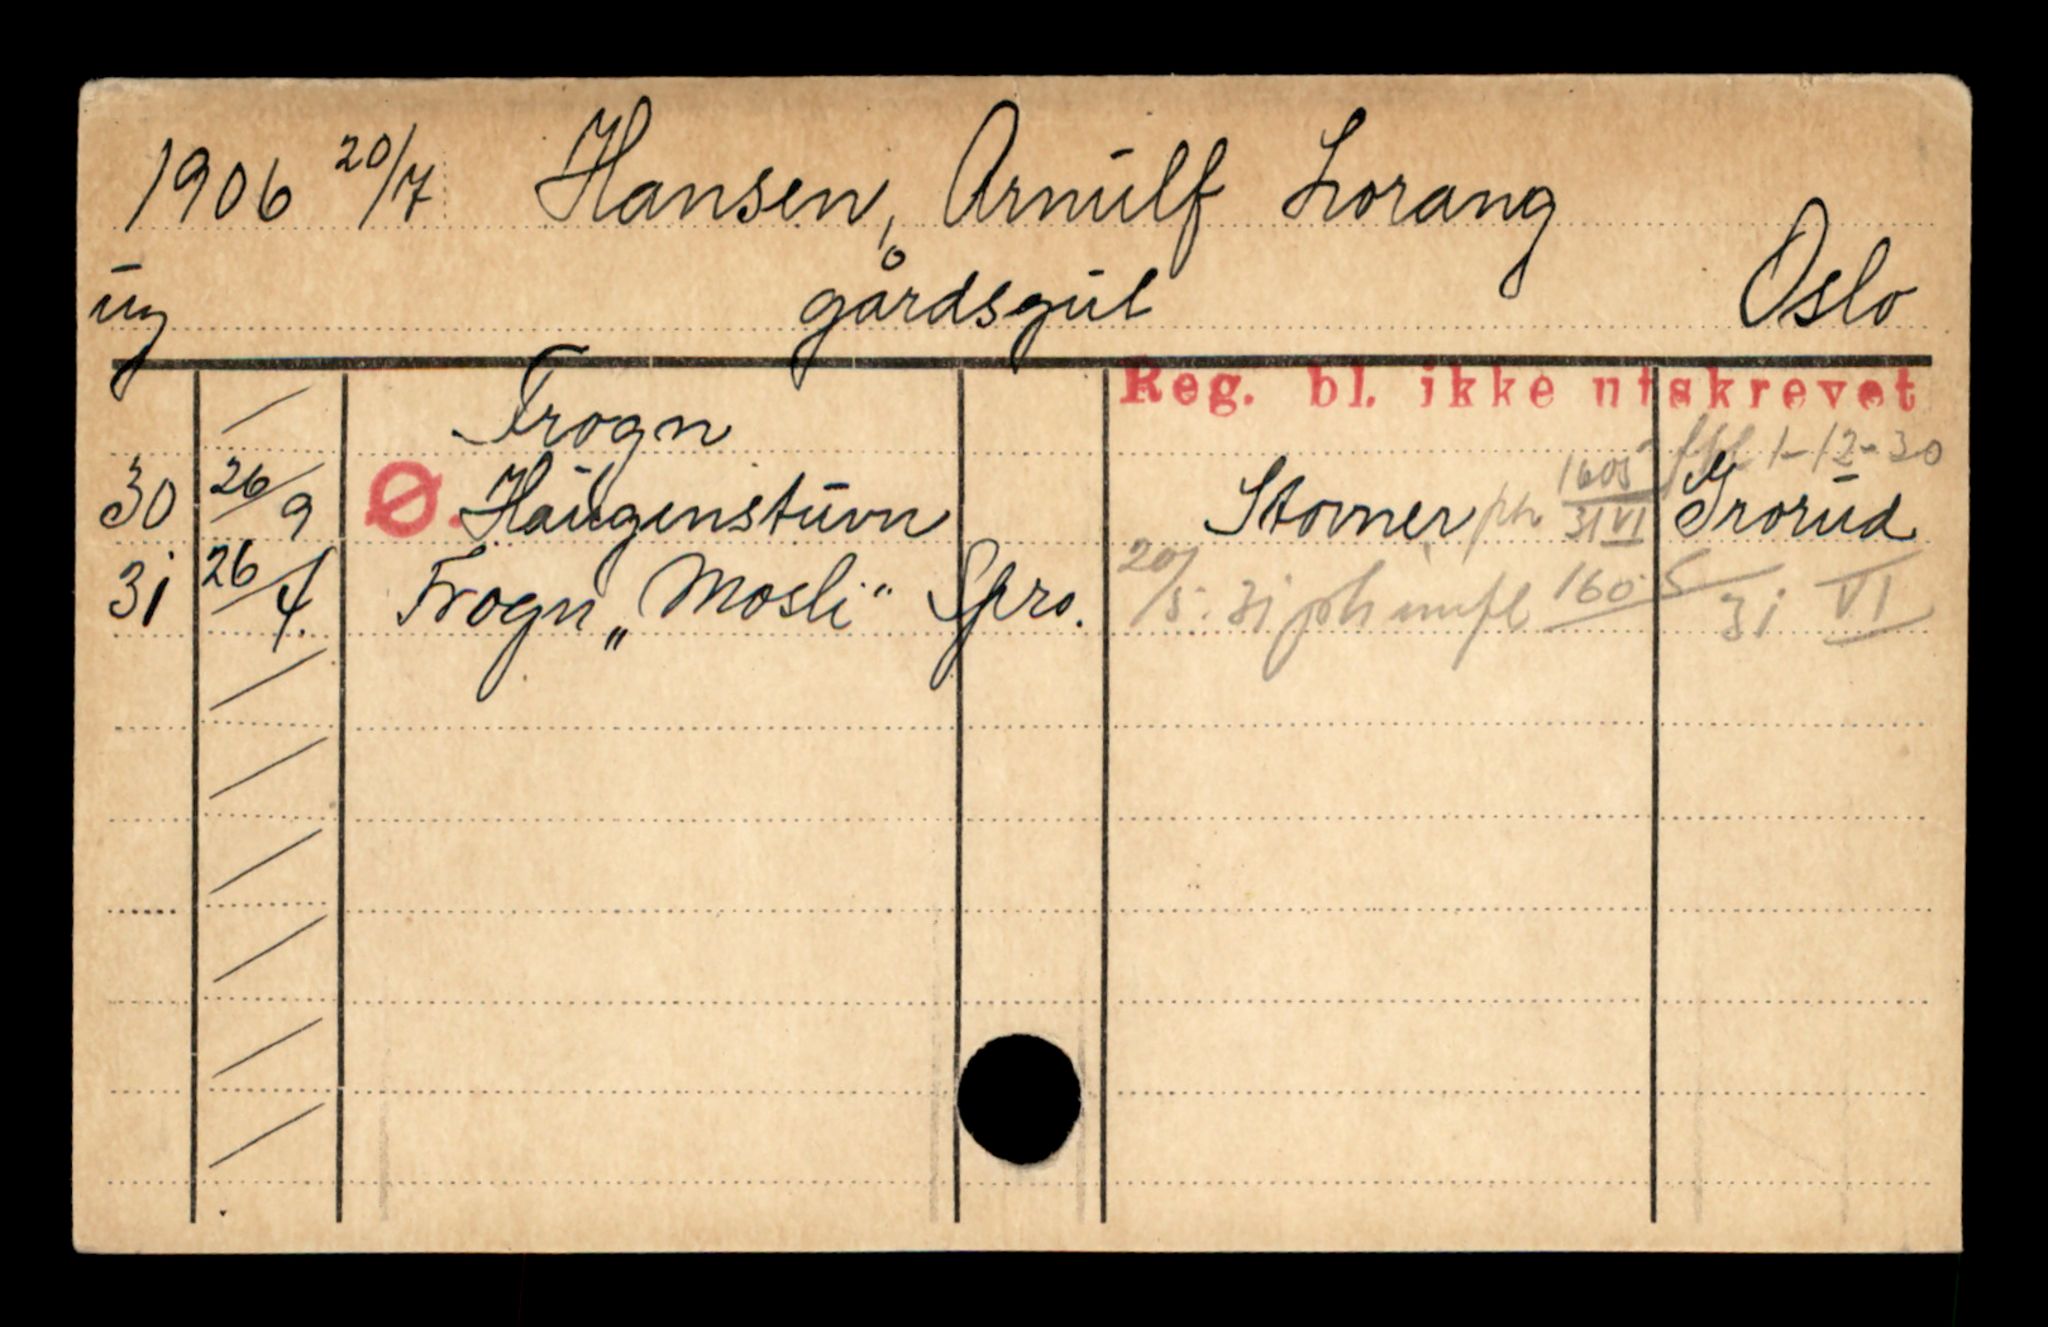 1906 20/7 Hansen, Arnulf Lorang
ug gårdsgut Oslo
Reg. bl. ikke utskrevet
Frogn
1-12-30
30 26/9 Ø. Haugenstuvn Stovner ph 1605/31 VI Grorud
31 26/4. Frogn „Mosli" Spro. 20/5. 31 ph 1605/31 VI